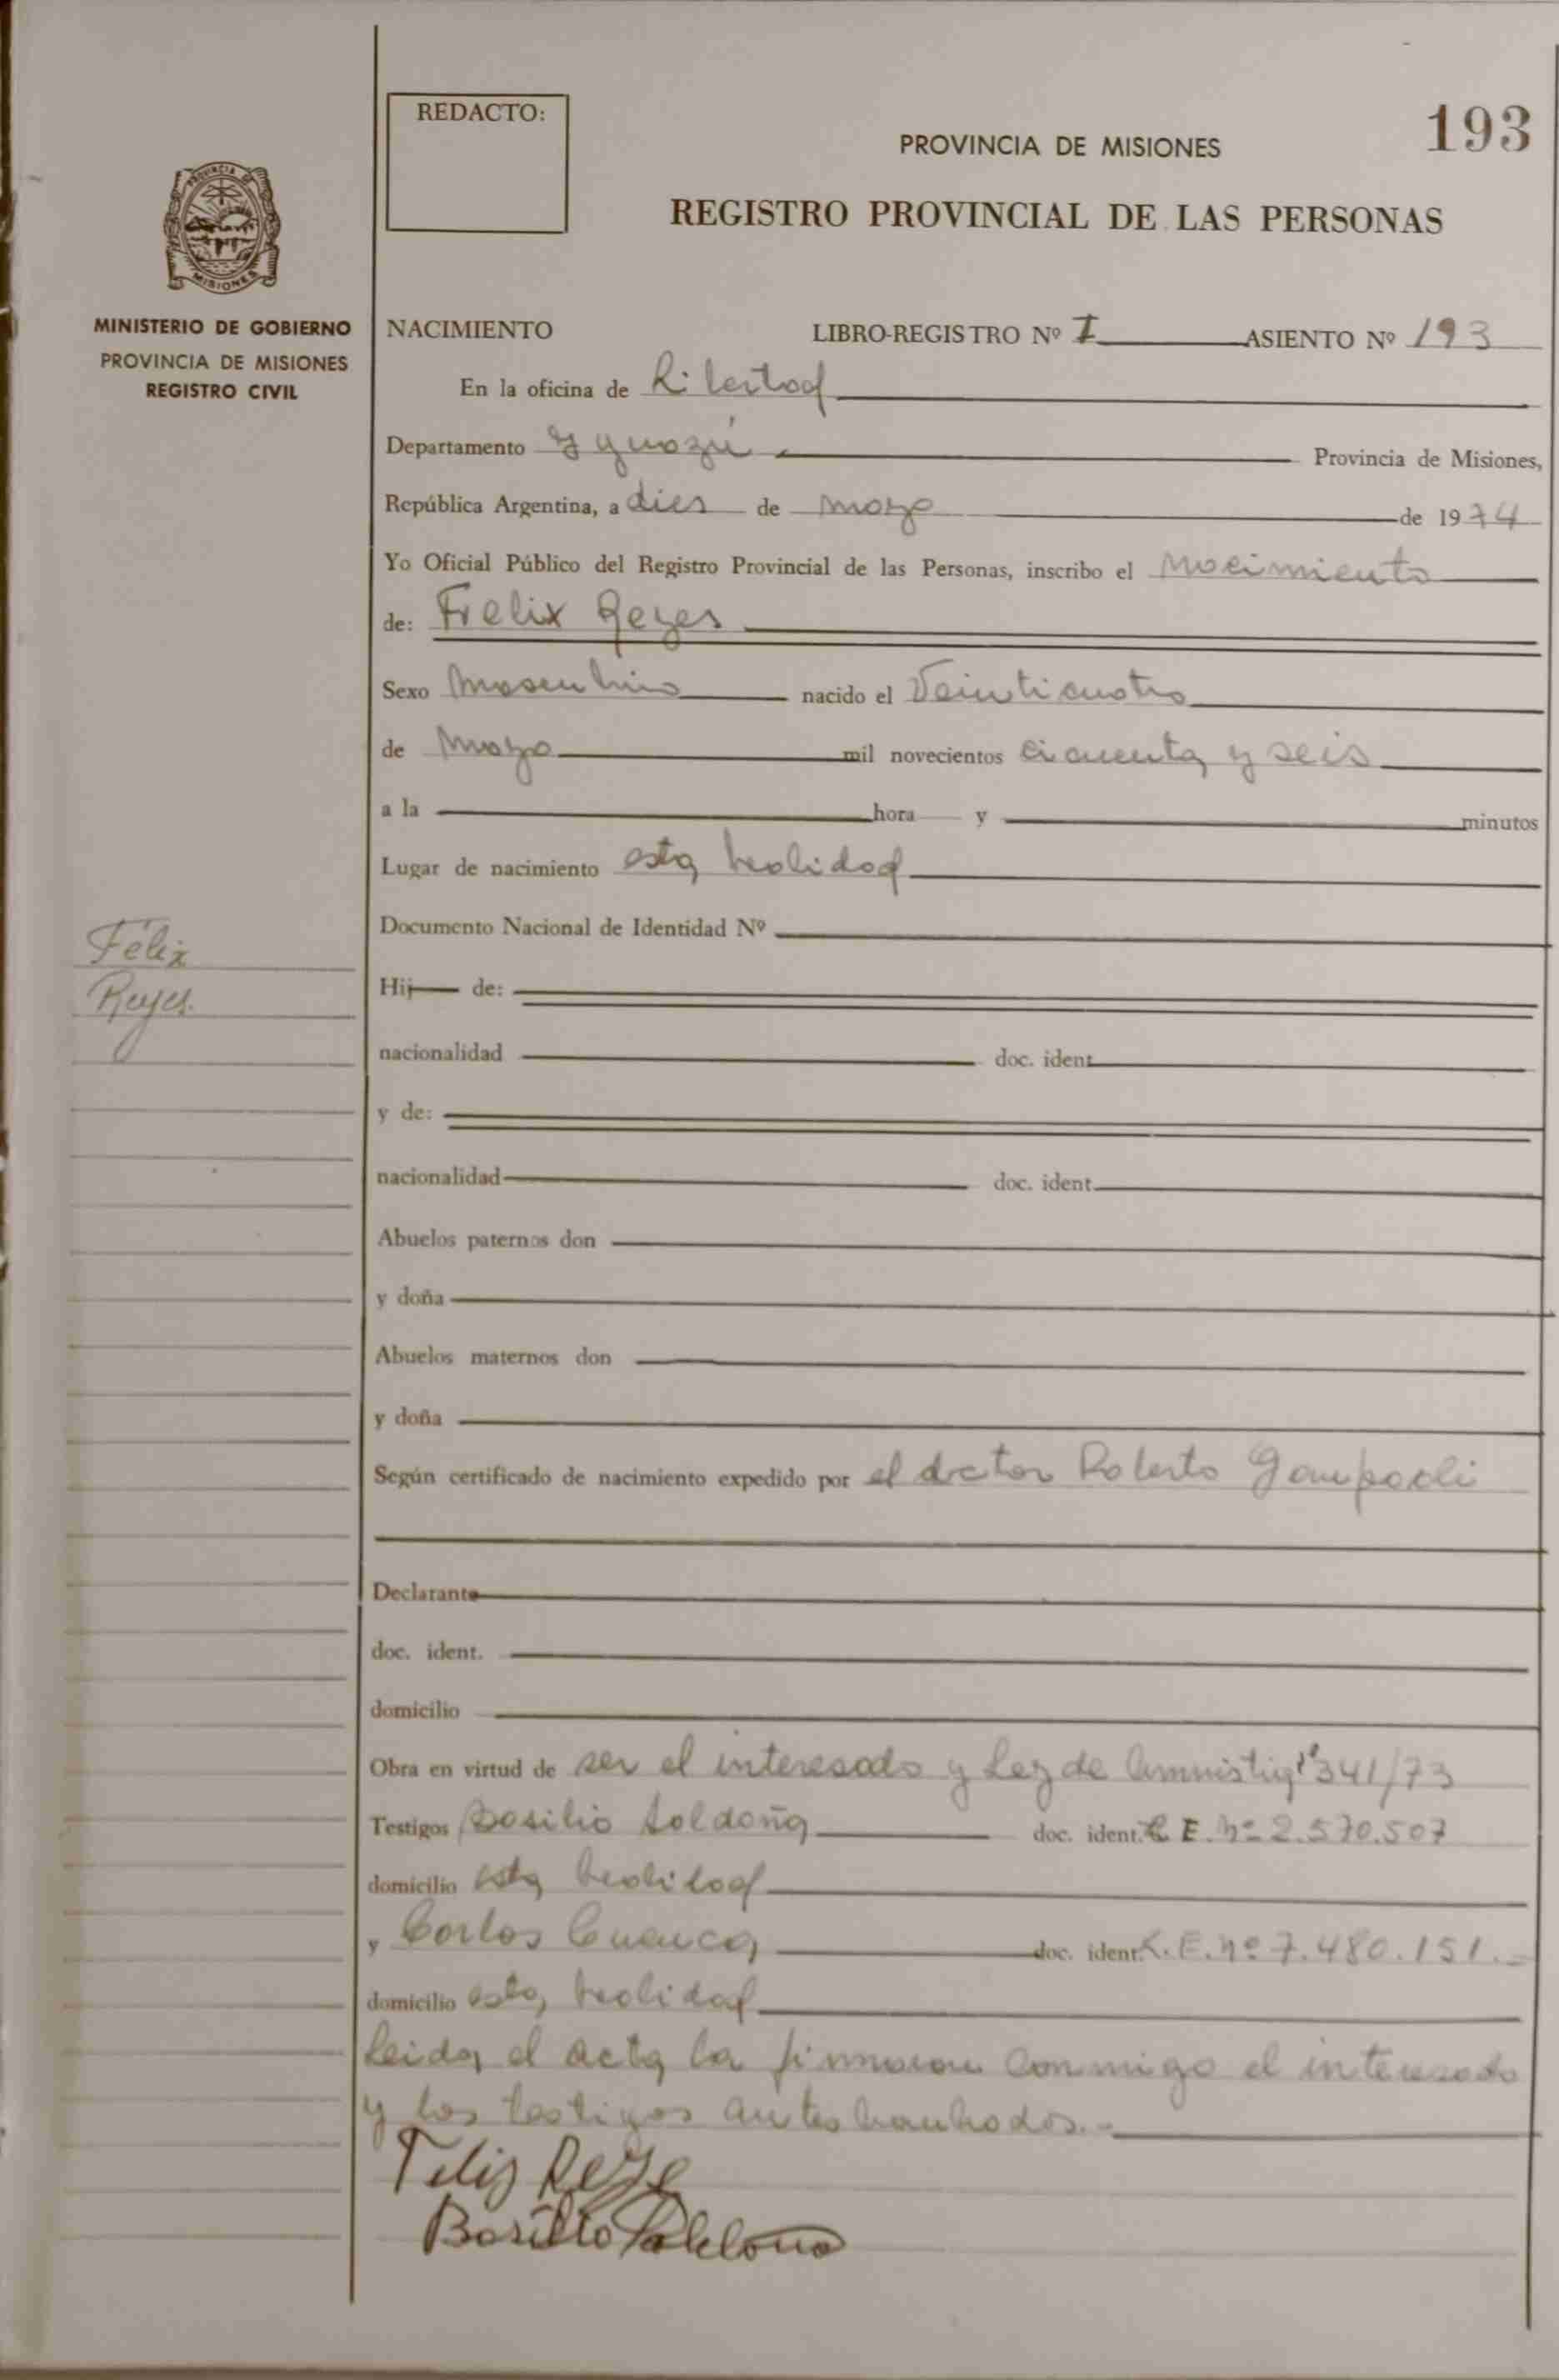 REDACTO:
193
PROVINCIA DE MISIONES
REGISTRO PROVINCIAL DE LAS PERSONAS
PROVINCIA DE
MISIONES
MINISTERIO DE GOBIERNO
PROVINCIA DE MISIONES
REGISTRO CIVIL
Félix
Reyes.
NACIMIENTO LIBRO-REGISTRO Nº I ASIENTO Nº 193
En la oficina de Libertad
Departamento Yguazú Provincia de Misiones,
República Argentina, a dies de mayo de 1974
Yo Oficial Público del Registro Provincial de las Personas, inscribo el nacimiento
de: Felix Reyes
Sexo masculino nacido el Veinticuatro
de mayo mil novecientos cicuenta y seis
a la hora y minutos
Lugar de nacimiento esta localidad
Documento Nacional de Identidad Nº
Hij de:
nacionalidad doc. ident
y de:
nacionalidad doc. ident.
Abuelos paternos don
y doña
Abuelos maternos don
y doña
Según certificado de nacimiento expedido por el doctor Roberto
Declarante
doc. ident.
domicilio
Obra en virtud de ser el interesado y Ley de Amnistia 341/73
Testigos Basilio Soldaña doc. ident. L E. nº 2.570.507
domicilio esta localidad
y Carlos Cuenca doc. ident L. E. nº 7.480.151.-
domicilio esta localidad
Leida el acta la firmaron conmigo el interesado
y los testigos antes nombrados.-
Felix Reye
Basilio Saldana